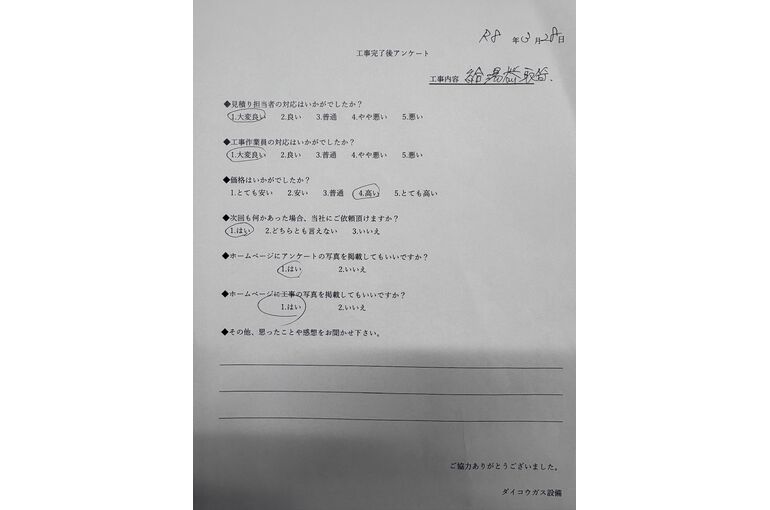 R8 年 3 月 28 日
工事完了後アンケート
工事内容 給湯器取替.
◆見積り担当者の対応はいかがでしたか？
1.大変良い 2.良い 3.普通 4.やや悪い 5.悪い
◆工事作業員の対応はいかがでしたか？
1.大変良い 2.良い 3.普通 4.やや悪い 5.悪い
◆価格はいかがでしたか？
1.とても安い 2.安い 3.普通 4.高い 5.とても高い
◆次回も何かあった場合、当社にご依頼頂けますか？
1.はい 2.どちらとも言えない 3.いいえ
◆ホームページにアンケートの写真を掲載してもいいですか？
1.はい 2.いいえ
◆ホームページに工事の写真を掲載してもいいですか？
1.はい 2.いいえ
◆その他、思ったことや感想をお聞かせ下さい。
ご協力ありがとうございました。
ダイコウガス設備